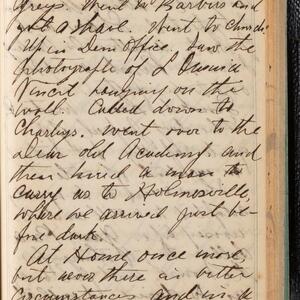 greys. Went to Barburs and
got a shave. Went to Church.
Up in Dem Office. Saw the
photographs of L
Vincit hanging on the
wall. Called down to
Charleys. Went over to the
Dear old Academy. and
then hired a man to
carry us to Holmesville,
where we arrived just be-
fore dark.
At Home once more,
but never there in better
circumstances and in a